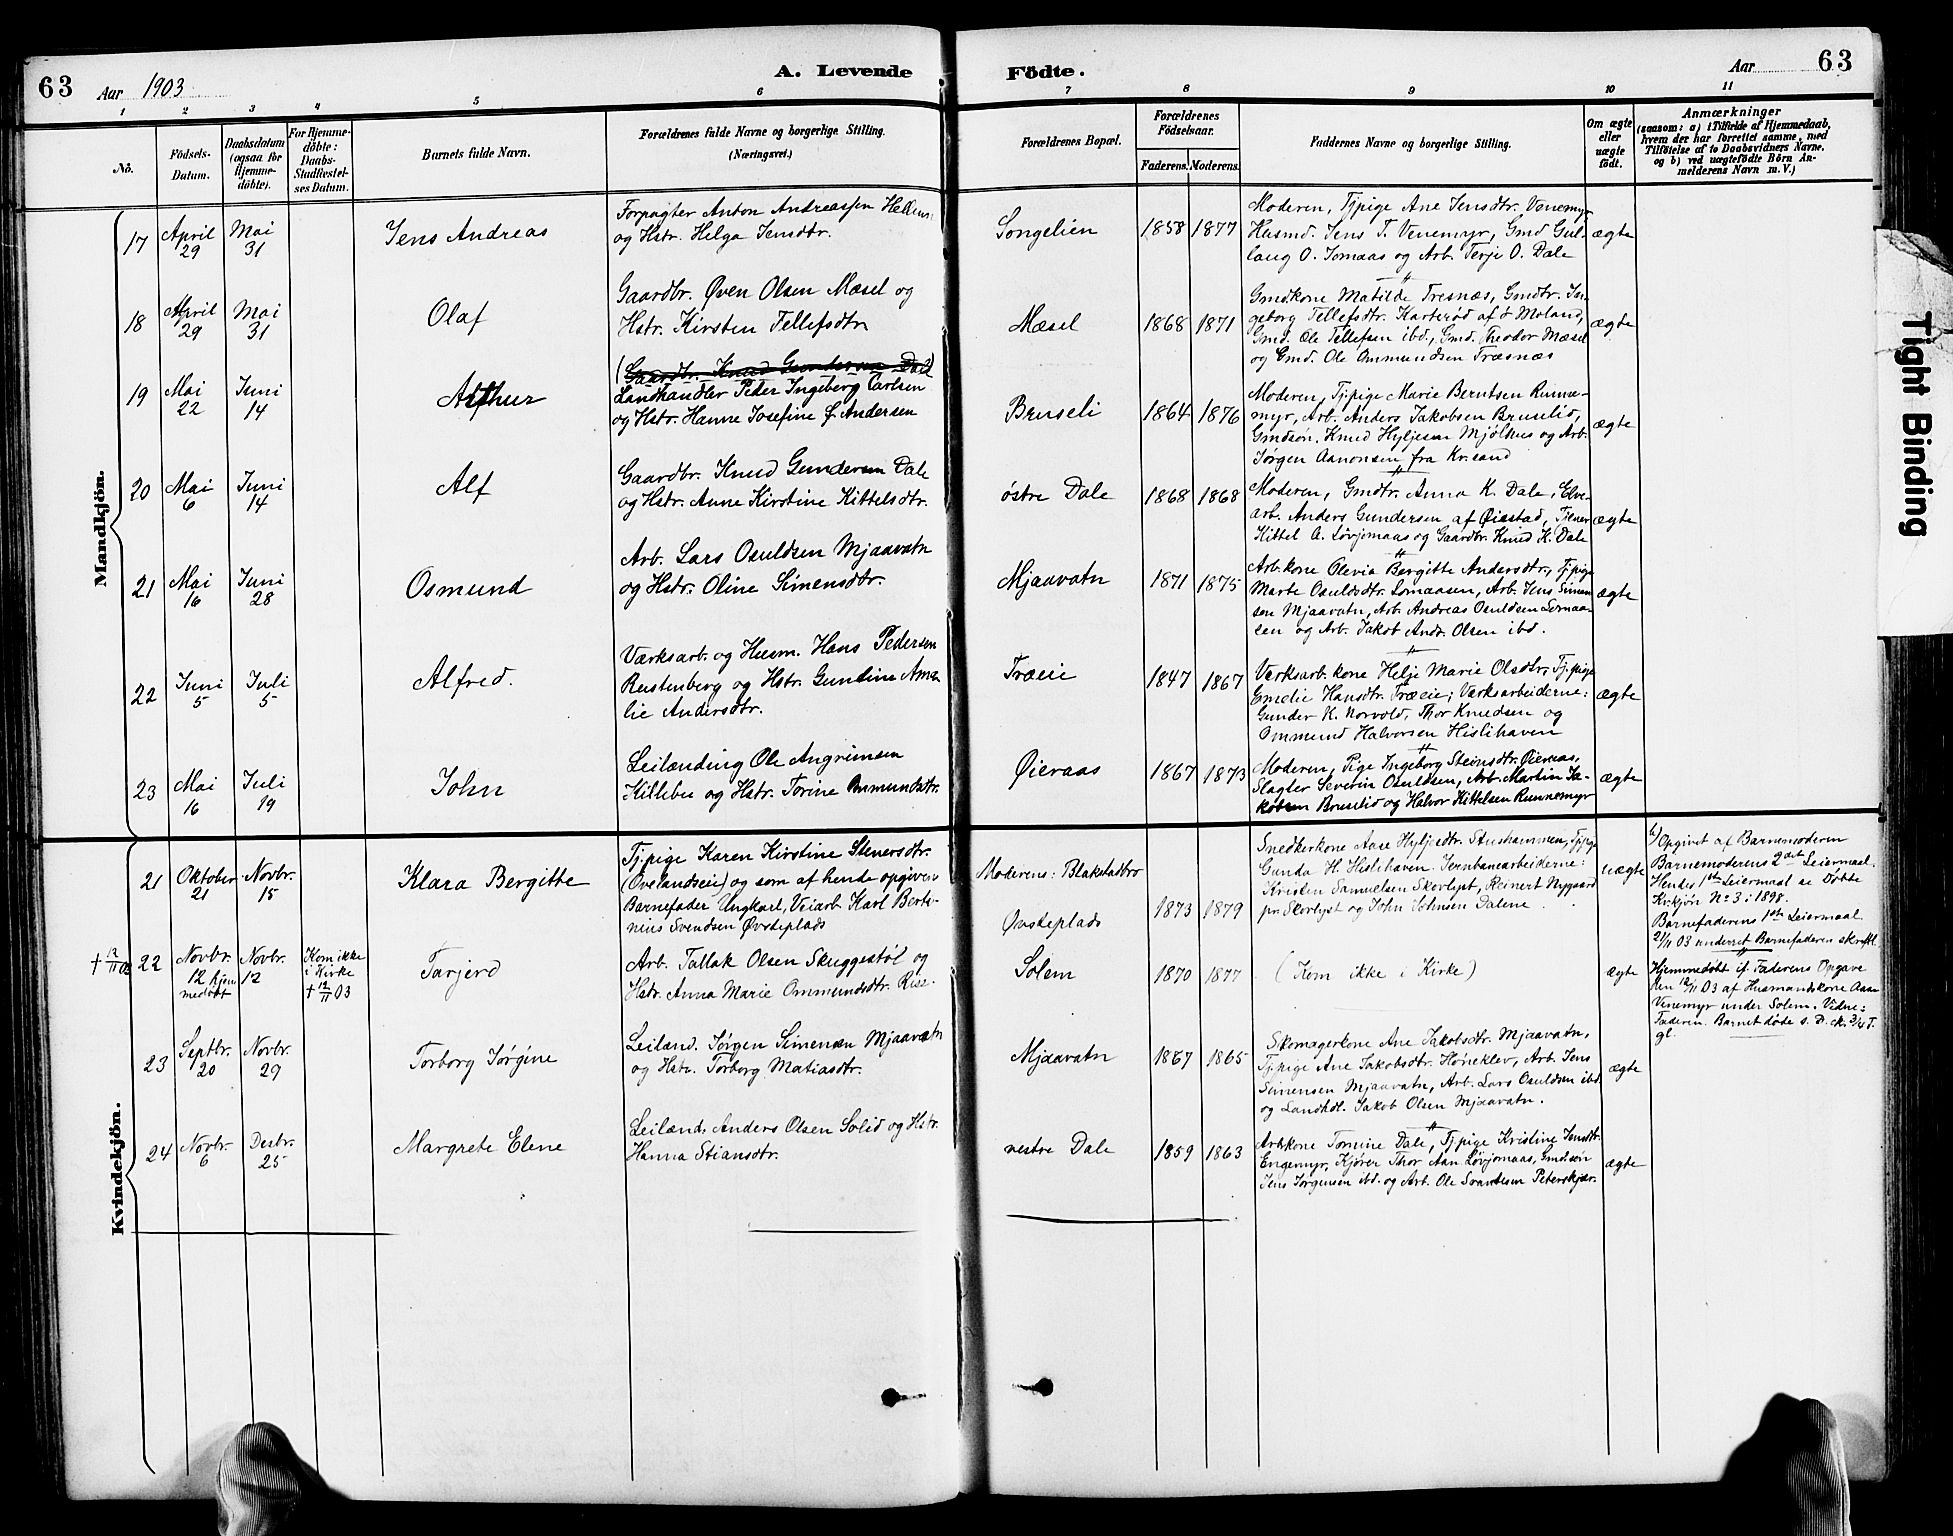 63
Aar 1903
A. Levende
Födte.
Aar
63
1 2 3 4 5 6 7 8 9 10 11
No.
Födsels-
Datum.
Daabsdatum
(ogsaa for
Hjemme-
döbte).
For Hjemme-
döbte:
Daabs-
Stadfæstel-
ses Datum.
Barnets fulde Navn.
Forældrenes fulde Navne og borgerlige Stilling.
(Næringsvei.)
Forældrenes Bopæl.
Forældrenes
Födselsaar.
Faderens. Moderens.
Faddernes Navne og borgerlige Stilling.
Om ægte
eller
uægte
födt.
Anmærkninger
(saasom: a) i Tilfælde af Hjemmedaab,
hvem der har forrettet samme, med
Tilföielse af to Daabsvidners Navne,
og b) ved uægtefödte Börn An-
melderens Navn m. V.)
Mandkjön.
17
April
29
Mai
31
Jens Andreas
Forpagter Anton Andreassen
og Hstr. Helga Jensdtr.
Songelien
1858 1877
Moderen, Tjpige Ane Jensdtr. Venemyr,
Husmd. Jens T. Venemyr, Gmd Gul-
laug O. Tomaas og Arb. Terje O. Dale
ægte
18
April
29
Mai
31
Olaf
Gaardbr. Øven Olsen Mæsel og
Hstr. Kirsten Tellefsdtr.
Mæsel
1868 1871
Gmdkone Matilde Tresnæs, Gmdtr. In-
geborg Tellefsdtr. Karterød af Ø Moland,
Gmd. Ole Tellefsen ibd., Gmd. Theodor Mæsel
og Gmd. Ole Ommundsen Træsnæs
ægte
19
Mai
22
Juni
14
Arthur
(Gaardbr. Knud Gundersen Dale)
Landhandler Peder Ingeberg Carlsen
og Hstr. Hanne Josefine f. Andersen
Bruseli
1864 1876
Moderen, Tjpige Marie Berntsen Runne-
myr, Arb. Anders Jakobsen Bruselid,
Gmdsøn. Knud Hyljesen Mjølhus og Arb.
Jørgen Aanonsen fra Kr.sand
ægte
20
Mai
6
Juni
14
Alf
Gaardbr. Knud Gundersen Dale
og Hstr. Anne Kirstine Kittelsdtr.
østre Dale
1868 1868
Moderen, Gmdtr. Anna K. Dale, Elve-
arb. Anders Gundersen af Øiestad, Tjener
Kittel A. Løvjomaas og Gaardbr. Knud H. Dale
ægte
21
Mai
16
Juni
28
Osmund
Arb. Lars Osuldsen Mjaavatn
og Hstr. Oline Simensdtr.
Mjaavatn
1871 1875
Arb.kone Olevia Bergitte Andersdtr., Tjpige
Marte Osuldsdtr. Lomaasen, Arb. Jens Simen
sen Mjaavatn, Arb. Andreas Osuldsen Lomaa-
sen og Arb. Jakob Andr. Olsen ibd.
ægte
22
Juni
5
Juli
5
Alfred.
Værksarb. og Husm. Hans Pedersen
Rustenberg og Hstr. Guntine Ama
lie Andersdtr.
Træeie
1847 1867
Værksarb.kone Helje Marie Olsdtr., Tj.pige
Emelie Hansdtr. Træeie; Værksarbeiderne:
Gunder K. Norvold, Thor Knudsen og
Ommund Halvorsen Hislihaven
ægte
23
Mai
16
Juli
19
John
Leilænding Ole Angrimsen
Killebu og Hstr. Torine Ommundsdtr.
Øieraas
1867 1873
Moderen, Pige Ingeborg Steinsdtr. Øieraas,
Slagter Severin Osuldsen, Arb. Martin Ja-
kobsen Bruselid og Halvor Kittelsen Runnemyr
ægte
Kvindekjön.
21
Oktober
21
Novbr.
15
Klara Bergitte
Tj.pige Karen Kirstine Stenersdtr.
(Øvelandseie) og som af hende opgiven
Barnefader Ungkarl, Veiarb. Karl Berti-
nius Svendsen Øvsteplads
Moderens: Blakstadbro
Øvsteplads
1873 1879
Snedkerkone Ane Hyljesdtr. Stenshammen, Tjpige
Gunda H. Hislihaven. Jernbanearbeiderne:
Kristen Samuelsen Skovlyst, Reinert Nygaard
pr. Skovlyst og John Johnsen Dalene
uægte
b) Opgivet af Barnemoderen
Barnemoderens 2det Leiermaal.
Hendes 1ste Leiermaal se Døbte
Kv.kjøn No 3 i 1898.
Barnefaderens 1ste Leiermaal
2/11 03 underret Barnefaderen skriftl.
† 12/11 03
22
Novbr.
12 hjem
medøbt
Novbr.
12
Kom ikke
i Kirke
† 12/11 03
Tarjerd
Arb. Tallak Olsen Skuggestøl og
Hstr. Anna Marie Ommundsdtr. Riss.
Solem
1870 1877
(Kom ikke i Kirke)
ægte
Hjemmedøbt if. Faderens Opgave
den 12/11 03 af Husmandskone Aase
Venemyr under Solem. Vidne:
Faderen. Barnet døde s. D.
23
Septbr.
20
Novbr.
29
Torborg Jørgine
Leilænd. Jørgen Simensen Mjaavatn
og Hstr. Torborg Matiasdtr.
Mjaavatn
1867 1865
Skomagerkone Ane Jakobsdtr. Mjaavatn,
Tj.pige Ane Jakobsdtr. Høneklev, Arb. Jens
Simensen Mjaavatn, Arb. Lars Osuldsen ibd.
og Landhdl. Jakob Olsen Mjaavatn.
ægte
24
Novbr.
6
Desbr.
25
Margrete Elene
Leilænd. Anders Olsen Solid og Hstr.
Hanna Stiansdtr.
nestre Dale
1859 1863
Arb.kone Tomine Dale, Tjpige Kristine Jensdtr.
Engemyr, Kjører Thor Aan Løvjomaas, Gmdsøn
Jens Jørgensen ibd. og Arb. Ole Svendsen Peterskjær.
ægte
Tight Binding